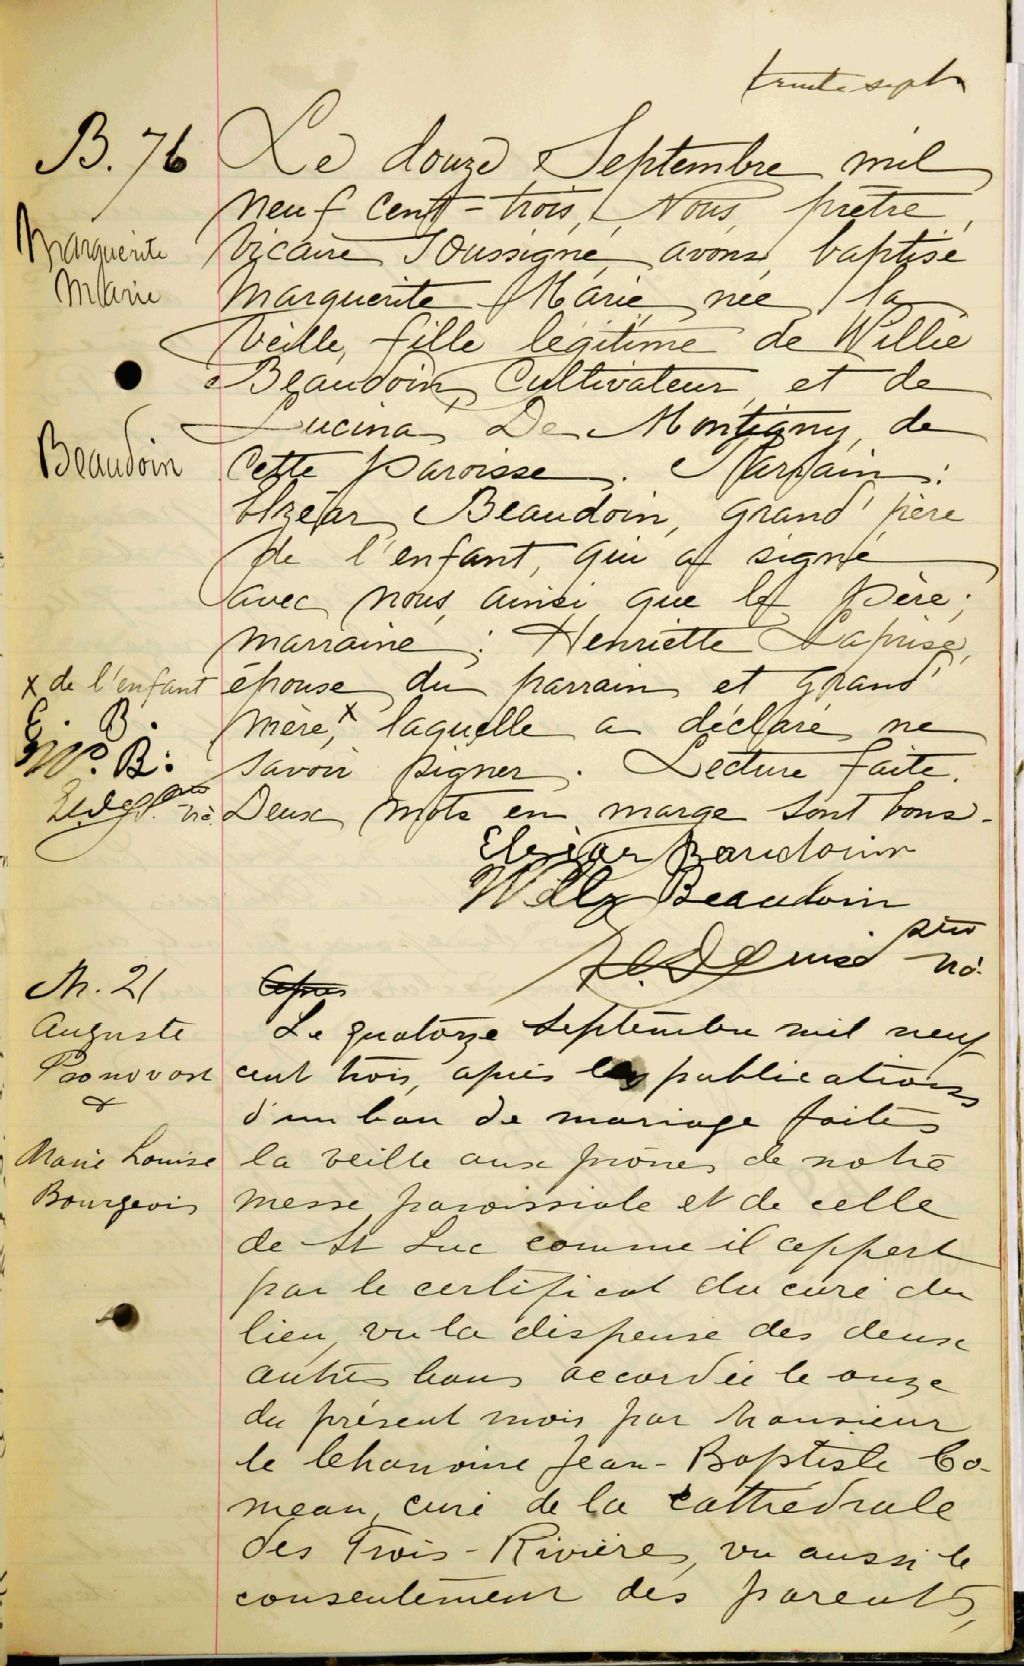 trente sept
B. 76
Marguerite
Marie
Beaudoin
Le douze Septembre mil
neuf cent-trois, Nous, prêtre,
vicaire soussigné, avons baptisé
Marguerite Marie, née la
veille, fille légitime de Willie
Beaudoin, Cultivateur et de
Lucina De Montigny, de
cette paroisse. Parrain:
Elzéar Beaudoin, grand'père
de l'enfant, qui a signé
avec nous, ainsi que le père;
marraine: Henriette Laprise,
épouse du parrain et grand'
mère,x laquelle a déclaré ne
savoir signer. Lecture faite.
Deux mots en marge sont bons.
x de l'enfant
E. B.
W. B:
ptre
vic.
Elzéar Baudoin
Willy Beaudoin
ptre
vic.
M. 21
Auguste
Pronovost
&
Marie Louise
Bourgeois
Apres
Le quatorze septembre mil neuf
cent trois, après les publications
d'un ban de mariage faites
la veille aux prônes de notre
messe paroissiale et de celle
de St Luc comme il appert
par le certificat du curé du
lieu, vu la dispense des deux
autres bans accordée le onze
du présent mois par Monsieur
le Chanoine Jean-Baptiste Co-
meau, curé de la cathédrale
des Trois-Rivières, vu aussi le
consentement des parents,